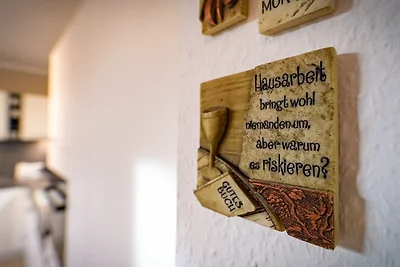 Hausarbeit
bringt wohl
niemanden um,
aber warum
es riskieren?
GUTES
BUCH